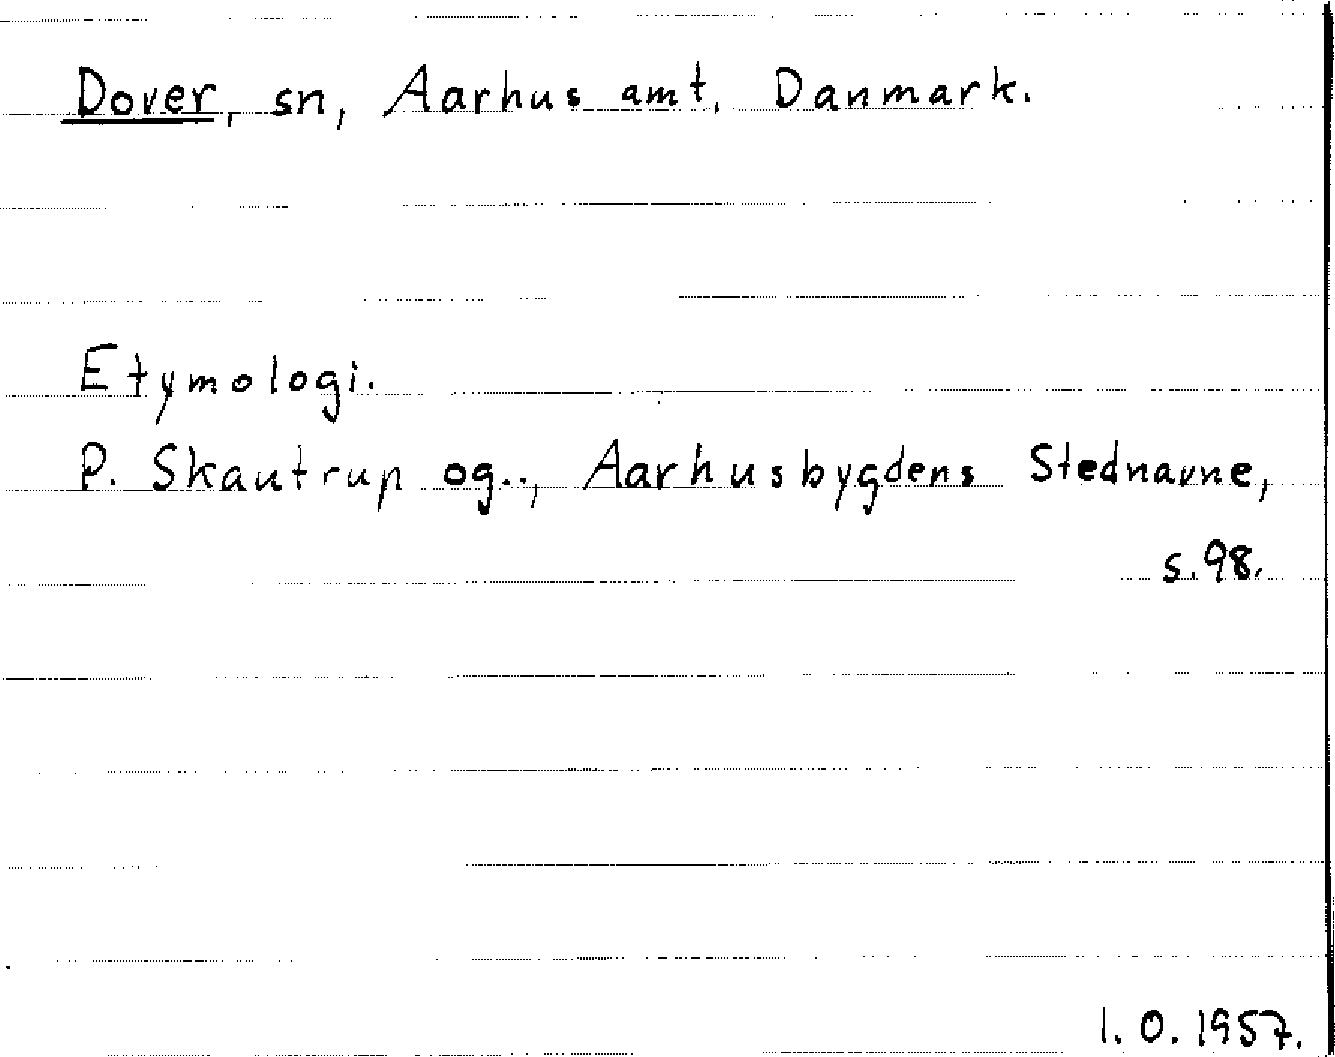 Dover, sn, Aarhus amt, Danmark.
Etymologi.
P. Skautrup og.., Aarhusbygdens Stednavne,
s. 98.
I. O. 1957.